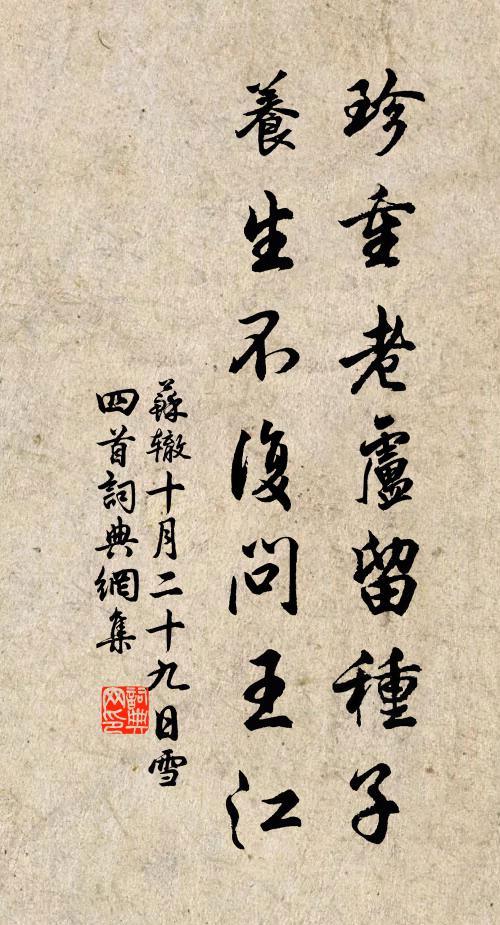 珍重老盧留種子
養生不復問王江
蘇轍十月二十九日雪
四首詞典網集
詞典
网印